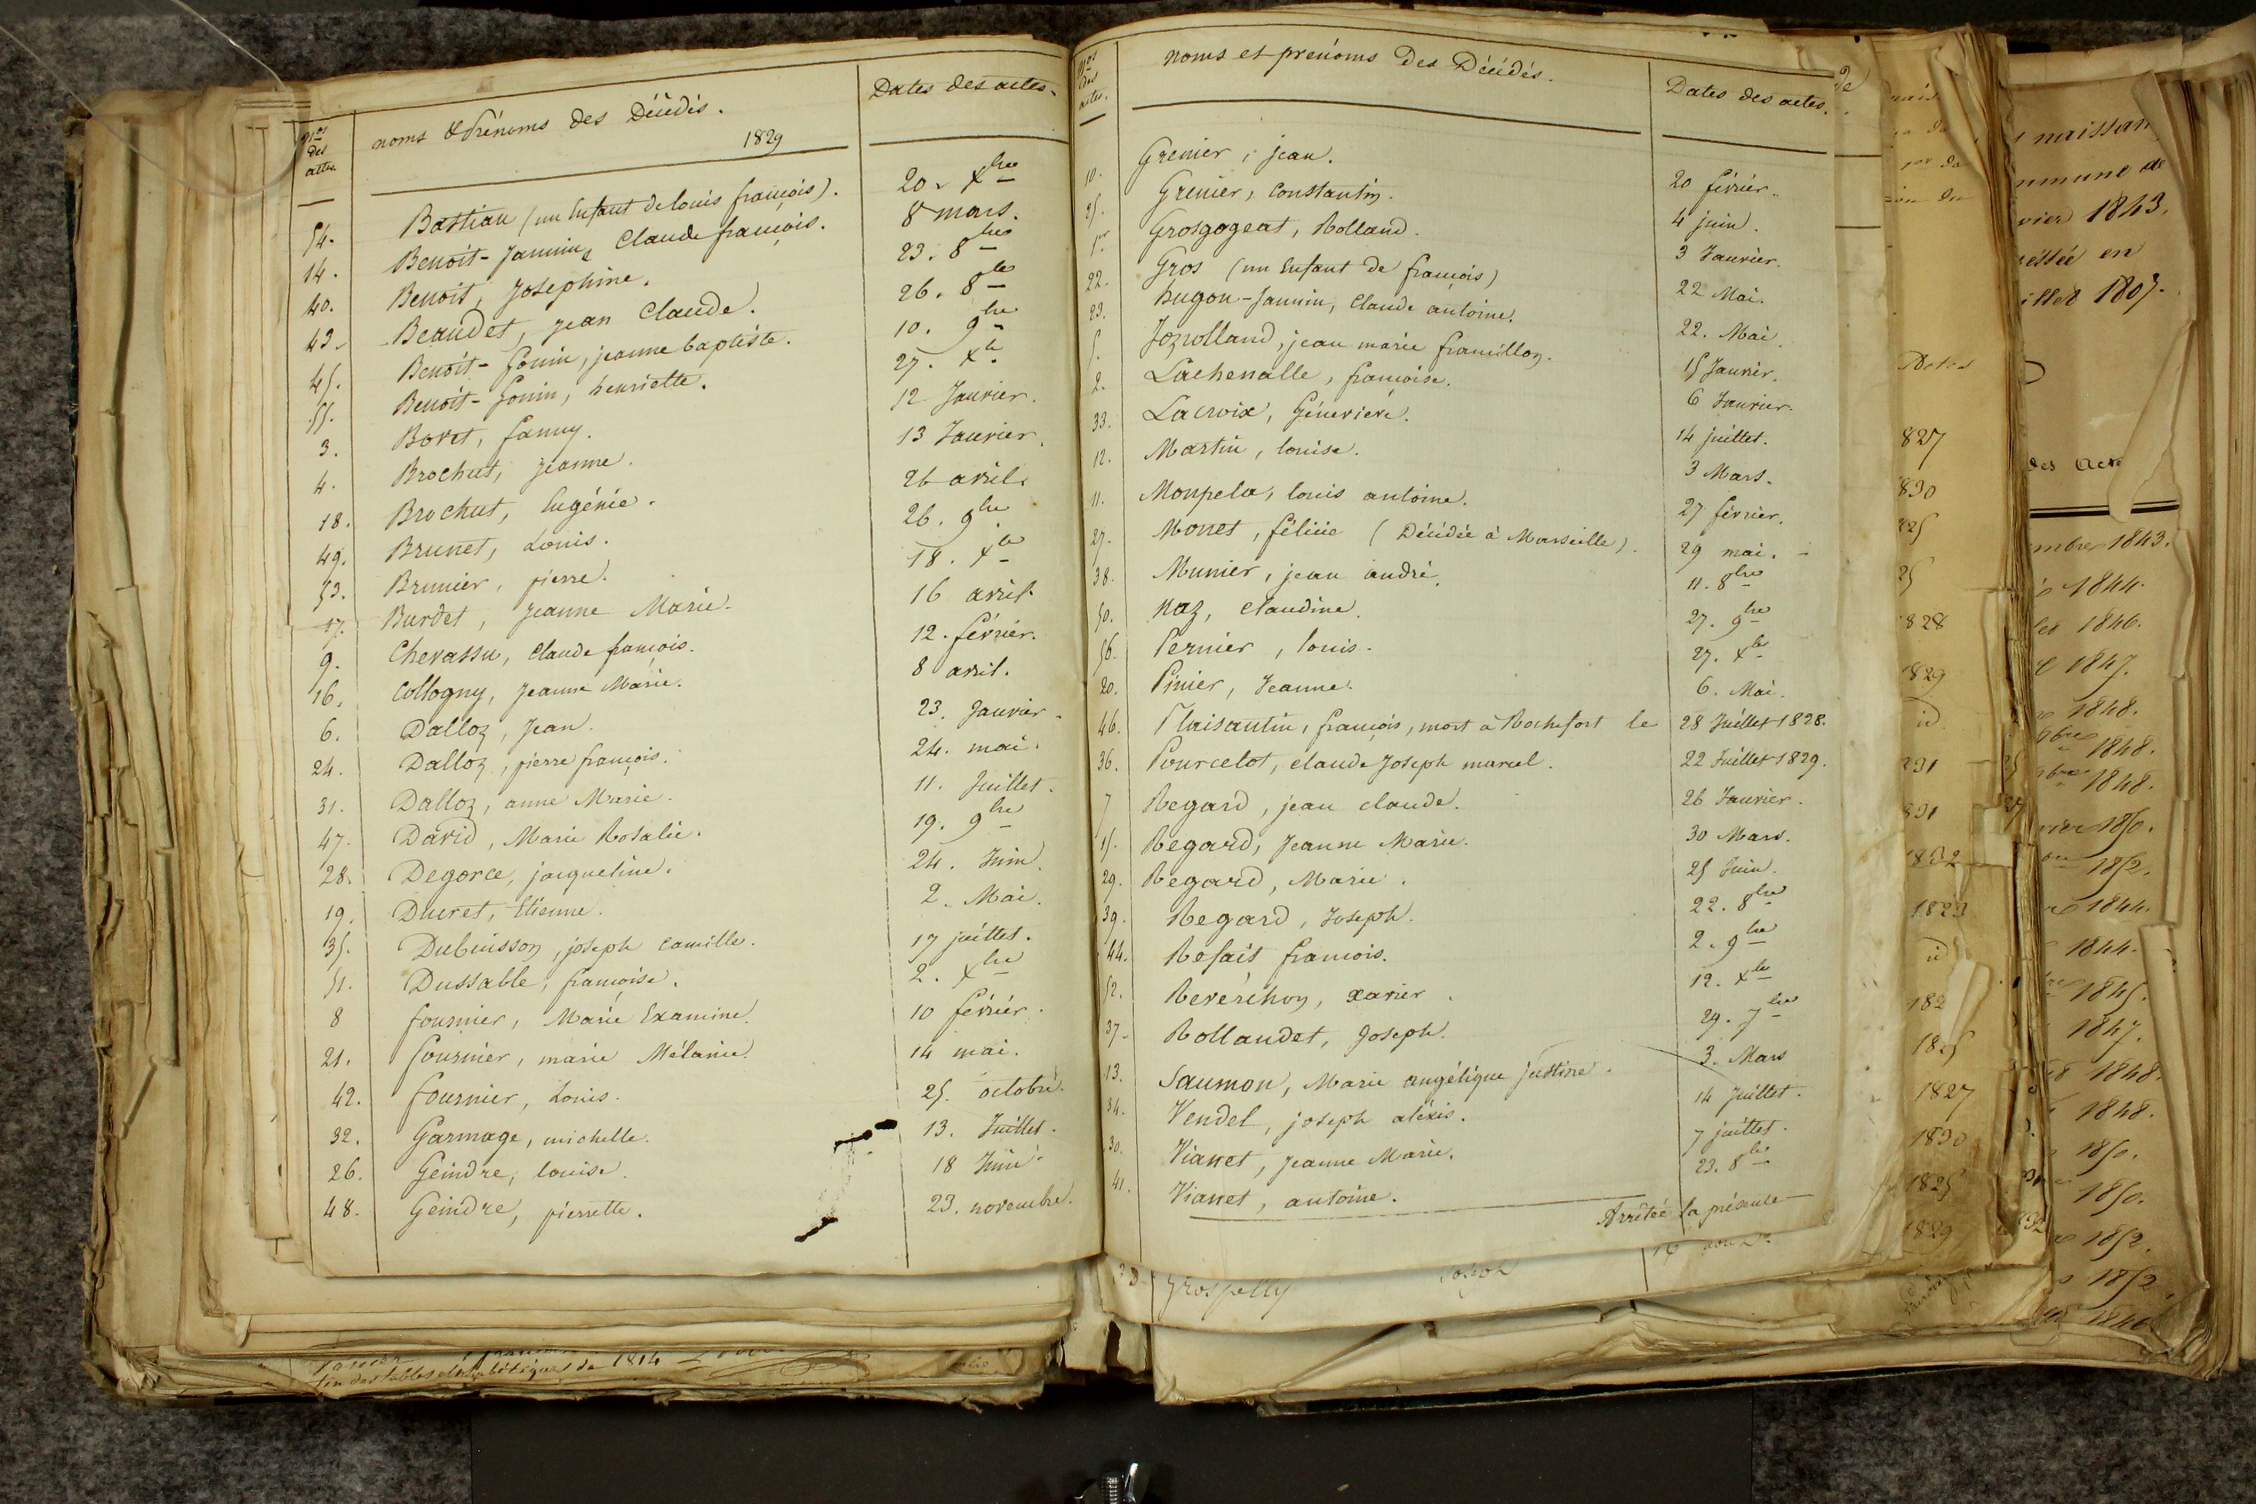 Nos des actes.
noms & Prénoms des Décédés.
1829
Dates des actes.
54. Bastian (un Enfant de louis françois). 20. Xbre
14. Benoit-Jannin, Claude françois. 8 mars.
40. Benoit, Josephine. 23. 8bre
43. Beaudet, Jean Claude. 26. 8bre
45. Benoit-Gonin, jeanne baptiste. 10. 9bre
55. Benoit-Gonin, henriette. 27. Xbre
3. Boret, fanny. 12 Janvier.
4. Brochut, Jeanne. 13 Janvier.
18. Brochut, Eugénie. 26 avril.
49. Brunet, Louis. 26. 9bre
53. Brunier, pierre. 18. Xbre
17. Burdet, Jeanne Marie. 16 avril.
9. Chevassu, Claude françois. 12. février.
16. Collogny, Jeanne Marie. 8 avril.
6. Dalloz, Jean. 23. Janvier.
24. Dalloz, pierre françois. 24. mai.
31. Dalloz, anne Marie. 11. Juillet.
47. David, Marie Rosalie. 19. 9bre
28. Degorce, jacqueline. 24. Juin.
19. Ducret, Etienne. 2. Mai.
35. Dubuisson, joseph camille. 17 juillet.
51. Dussable, françoise. 2. Xbre
8 fournier, Marie Examine. 10 février.
21. fournier, marie Mélanie. 14 mai.
42. fournier, Louis. 25. octobre.
32. Garmage, michelle. 13. Juillet.
26. Geindre, louise. 18 Juin.
48. Geindre, pierrette. 23. novembre.
Nos des actes.
noms et prénoms des Décédés.
Dates des actes.
10. Grenier, jean. 20 février.
25. Grenier, Constantin. 4 juin.
1er Grosgogeat, Rolland. 3 Janvier.
22. Gros (un Enfant de françois) 22 Mai.
23. hugon-Jannin, Claude antoine. 22. Mai.
5. Jozrolland, jean marie francillon. 15 Janvier.
2. Lachenalle, françoise. 6 Janvier.
33. Lacroix, Géneviève. 14 juillet.
12. Martin, louise. 3 Mars.
11. Monpela, louis antoine. 27 février.
27. Monet, félicie (Décédée à Marseille). 29 mai.
38. Munier, jean andré. 11. 8bre
50. Naz, Claudine. 27. 9bre
56. Pernier, louis. 27. Xbre
20. Pinier, Jeanne. 6. Mai.
46. Plaisantin, françois, mort à Rochefort le 28 Juillet 1828.
36. Pourcelot, claude Joseph marcel. 22 Juillet 1829.
7 Regard, jean claude. 26 Janvier.
15. Regard, Jeanne Marie. 30 Mars.
29. Regard, Marie. 25 Juin.
39. Regard, Joseph. 22. 8bre
44. Refait françois. 2. 9bre
52. Reverchon, xavier. 12. Xbre
37. Rollandet, Joseph. 29. 7bre
13. Saumon, Marie angélique justine. 3. Mars
34. Vendel, joseph alexis. 14 Juillet.
30. Vianet, Jeanne Marie. 7 juillet.
41. Vianet, antoine. 23. 8bre
Arrêtée la présente
Grospelly Joseph
fin des tables alphabétiques de 1814
827
830
828
1829
id
1832
1823
id
1827
1830
1825
1829
naissan
vier 1843.
en
1807.
des Acte
mbre 1843.
1844.
1846.
1847.
1848.
9bre 1848.
1848.
vier 1850.
1852.
1844.
1844.
1845.
1847.
1848.
1848.
1850.
1850.
1852.
1852
1846